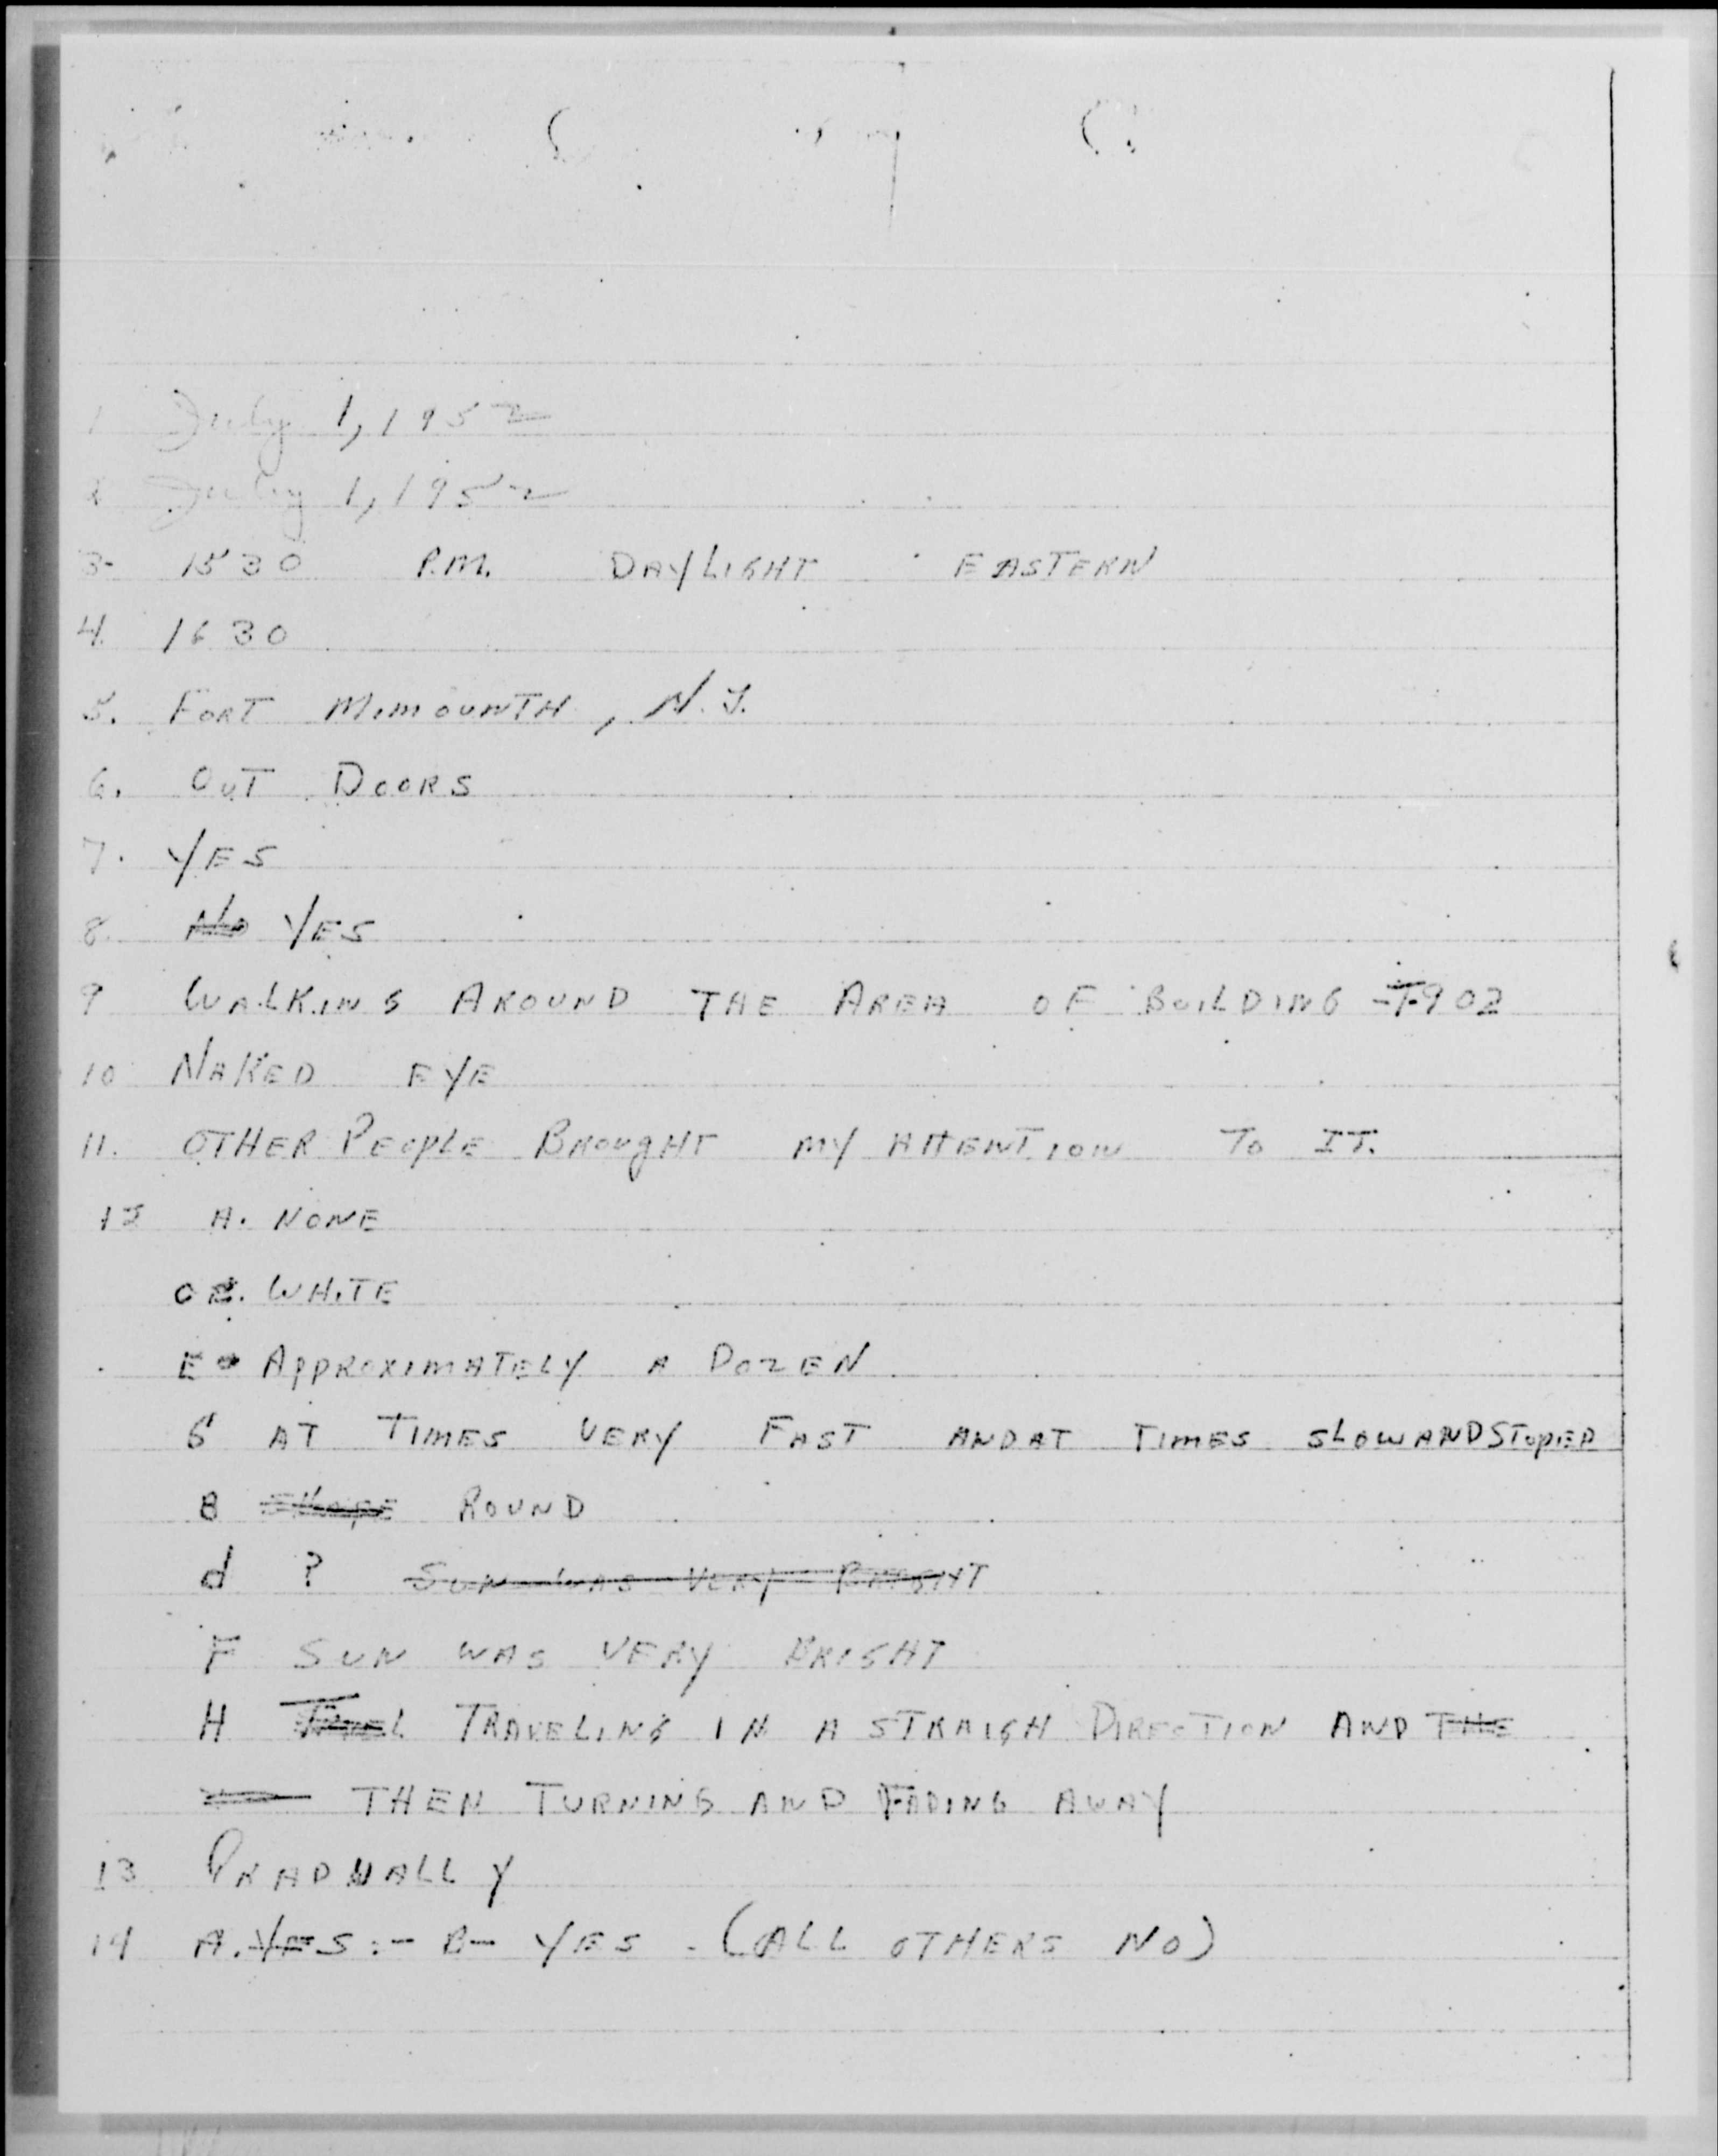 1 July 1, 1952
2 July 1, 1952
3- 1530 P.M. DAYLIGHT EASTERN
4. 1630
5. FORT MIMOUNTH, N.J.
6. OUT DOORS
7. YES
8. No YES
9 WALKING AROUND THE AREA OF BUILDING T-902
10 NAKED EYE
11. OTHER PEOPLE BROUGHT MY ATTENTION TO IT.
12 A. NONE
C. WHITE
E APPROXIMATELY A DOZEN
G AT TIMES VERY FAST AND AT TIMES SLOW AND STOPED
B SHAPE ROUND
d ? SUN WAS VERY BRIGHT
F SUN WAS VERY BRIGHT
H TRAVELING IN A STRAIGH DIRECTION AND THE
THEN TURNING AND FADING AWAY
13 GRADUALLY
14 A. YES :- B- YES . (ALL OTHERS NO)